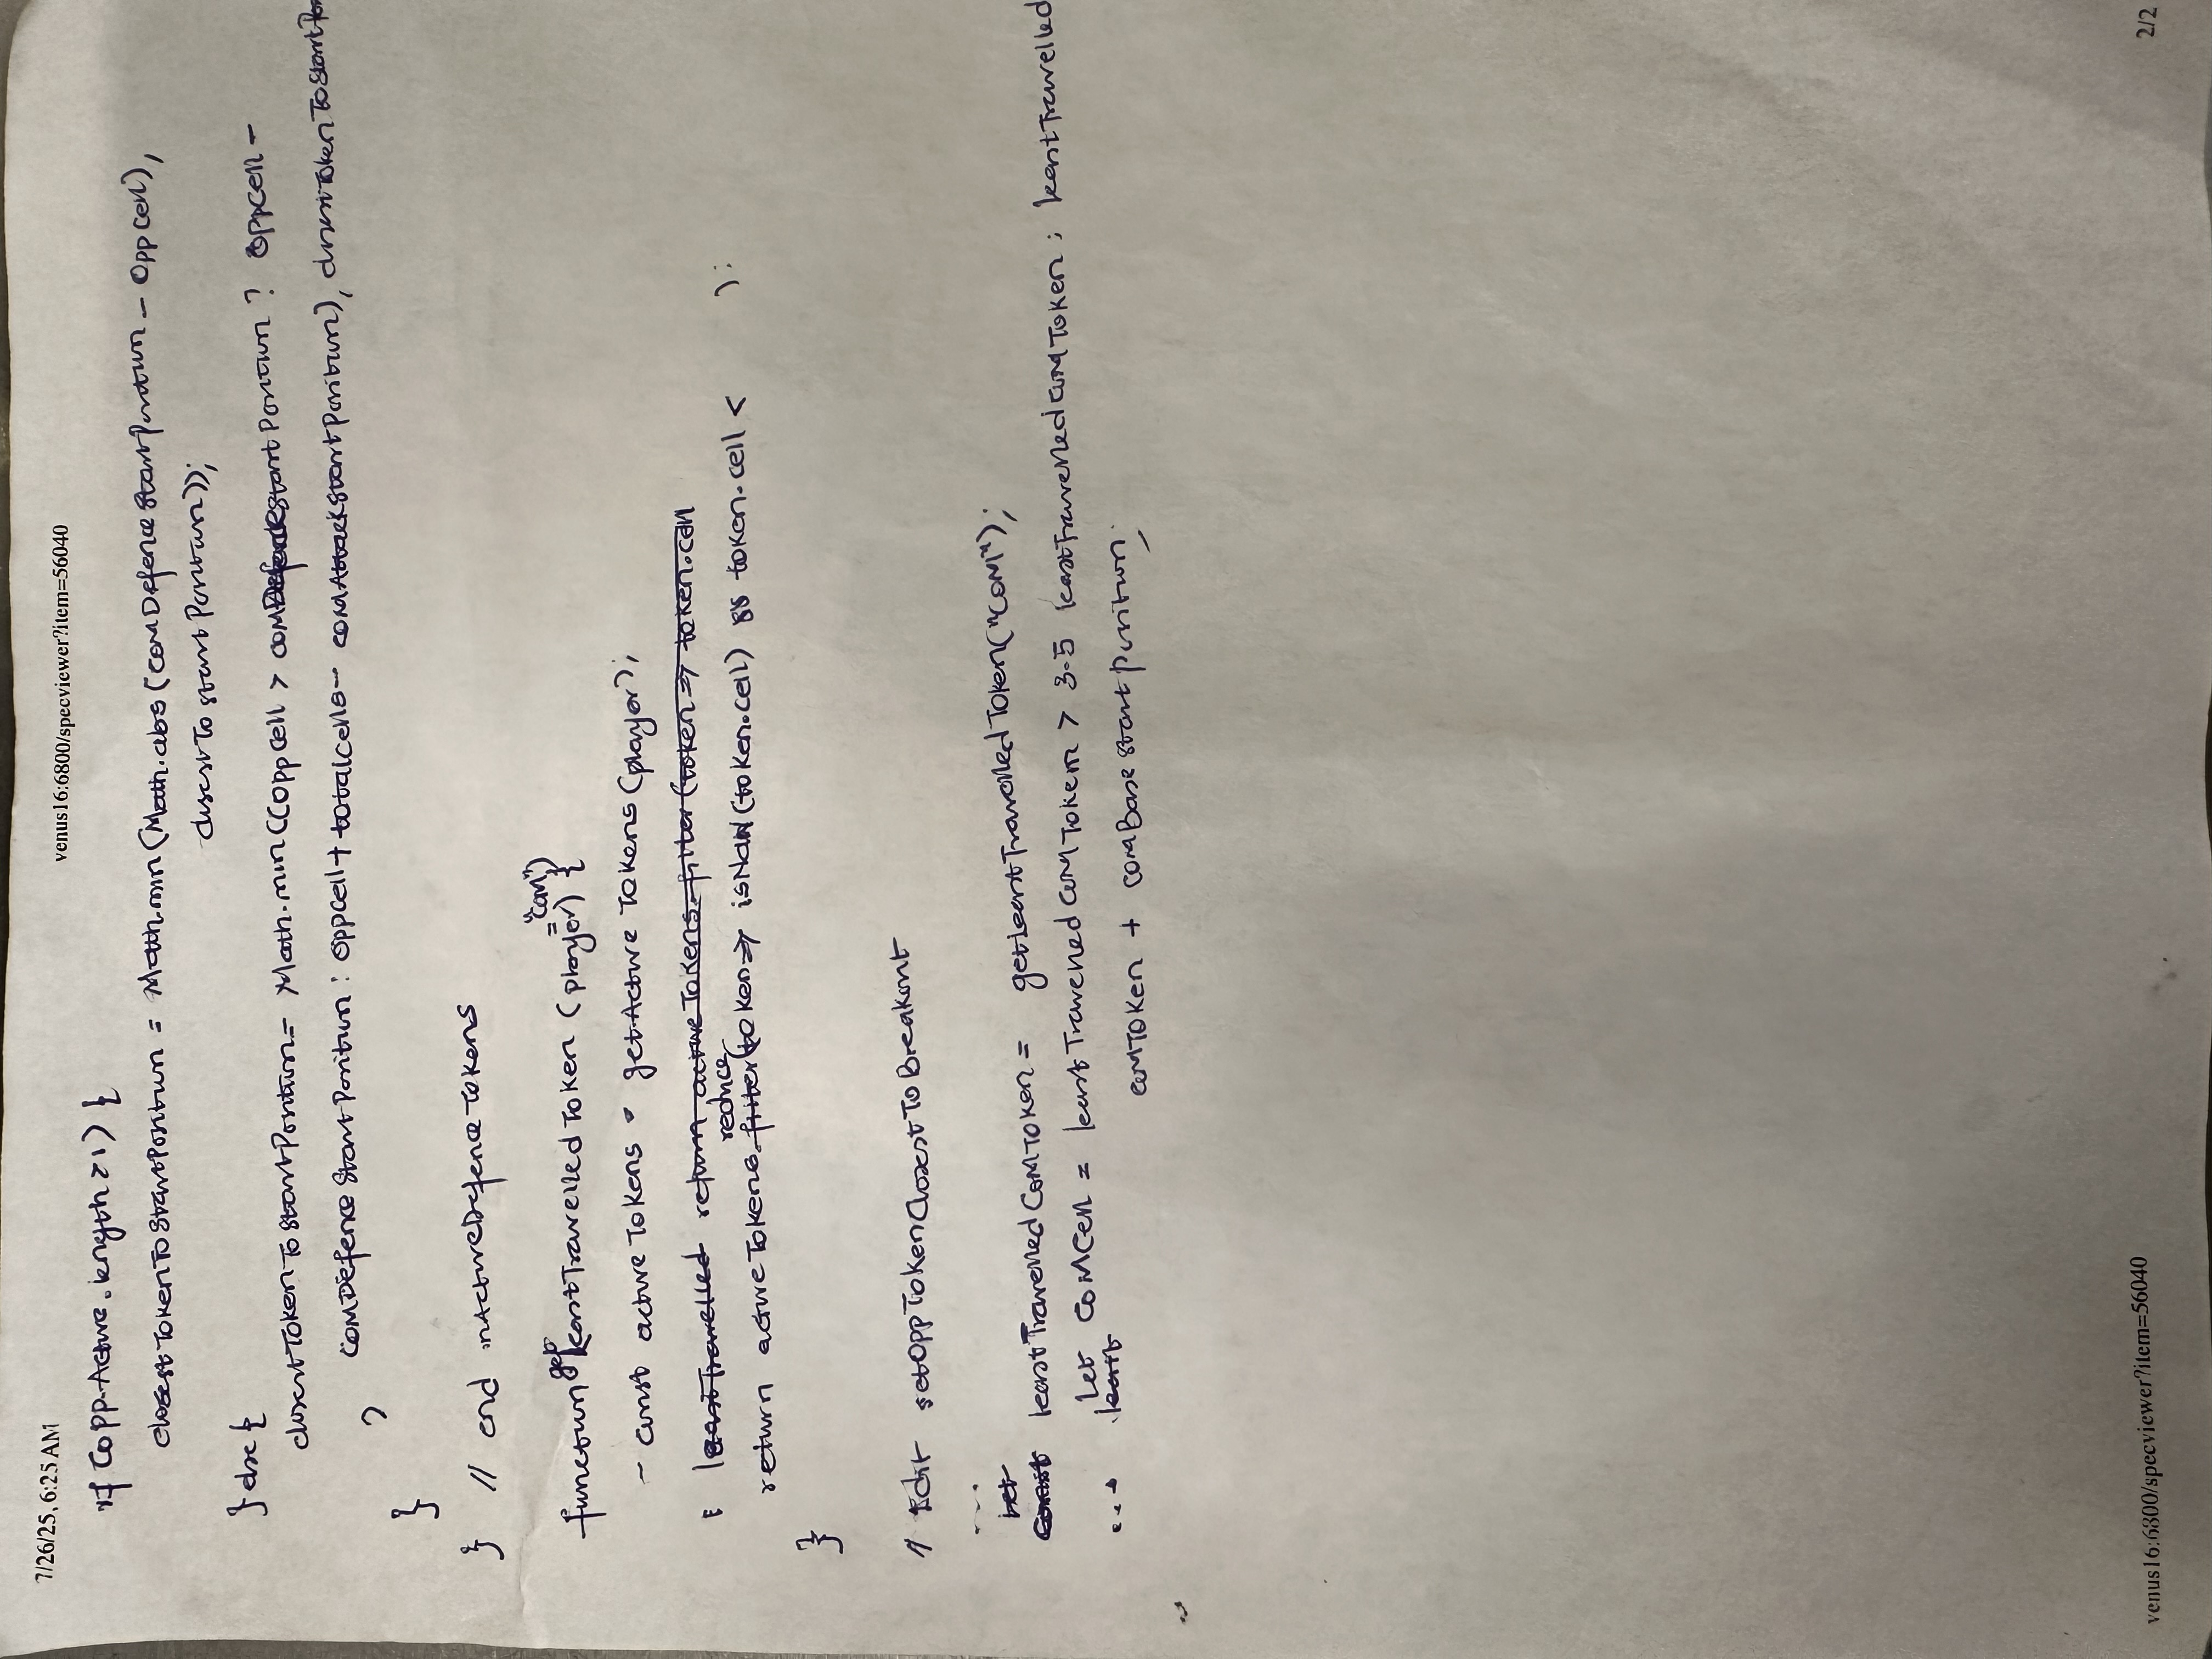 7/26/25, 6:25 AM
venus16:6800/specviewer?item=56040
if (opp.Active.length > 1) {
closestTokenToStartPosition = Math.min(Math.abs(COMDefenceStartPosition - OppCell),
closestToStartPosition));
} else {
closestTokenToStartPosition = Math.min((OppCell > COMDefenceStartPosition ? OppCell -
COMDefenceStartPosition : OppCell + totalCells - COMAttackStartPosition), closestTokenToStartPos
)
}
} // end inActiveDefenceTokens
= "COM")
function getLeastTravelledToken (player) {
- const activeTokens = getActiveTokens(player);
leastTravelled return activeTokens.filter(token => token.cell
reduce
return activeTokens.filter(token => isNaN(token.cell) && token.cell < );
}
// Edit setOppTokenClosestToBreakout
...
Let
Const leastTravelledCOMToken = getLeastTravelledToken("COM");
Let COMCell = leastTravelledCOMToken > 3.5 leastTravelledCOMToken ; leastTravelled
... least
COMToken + COMBaseStartPosition;
venus16:6800/specviewer?item=56040
2/2